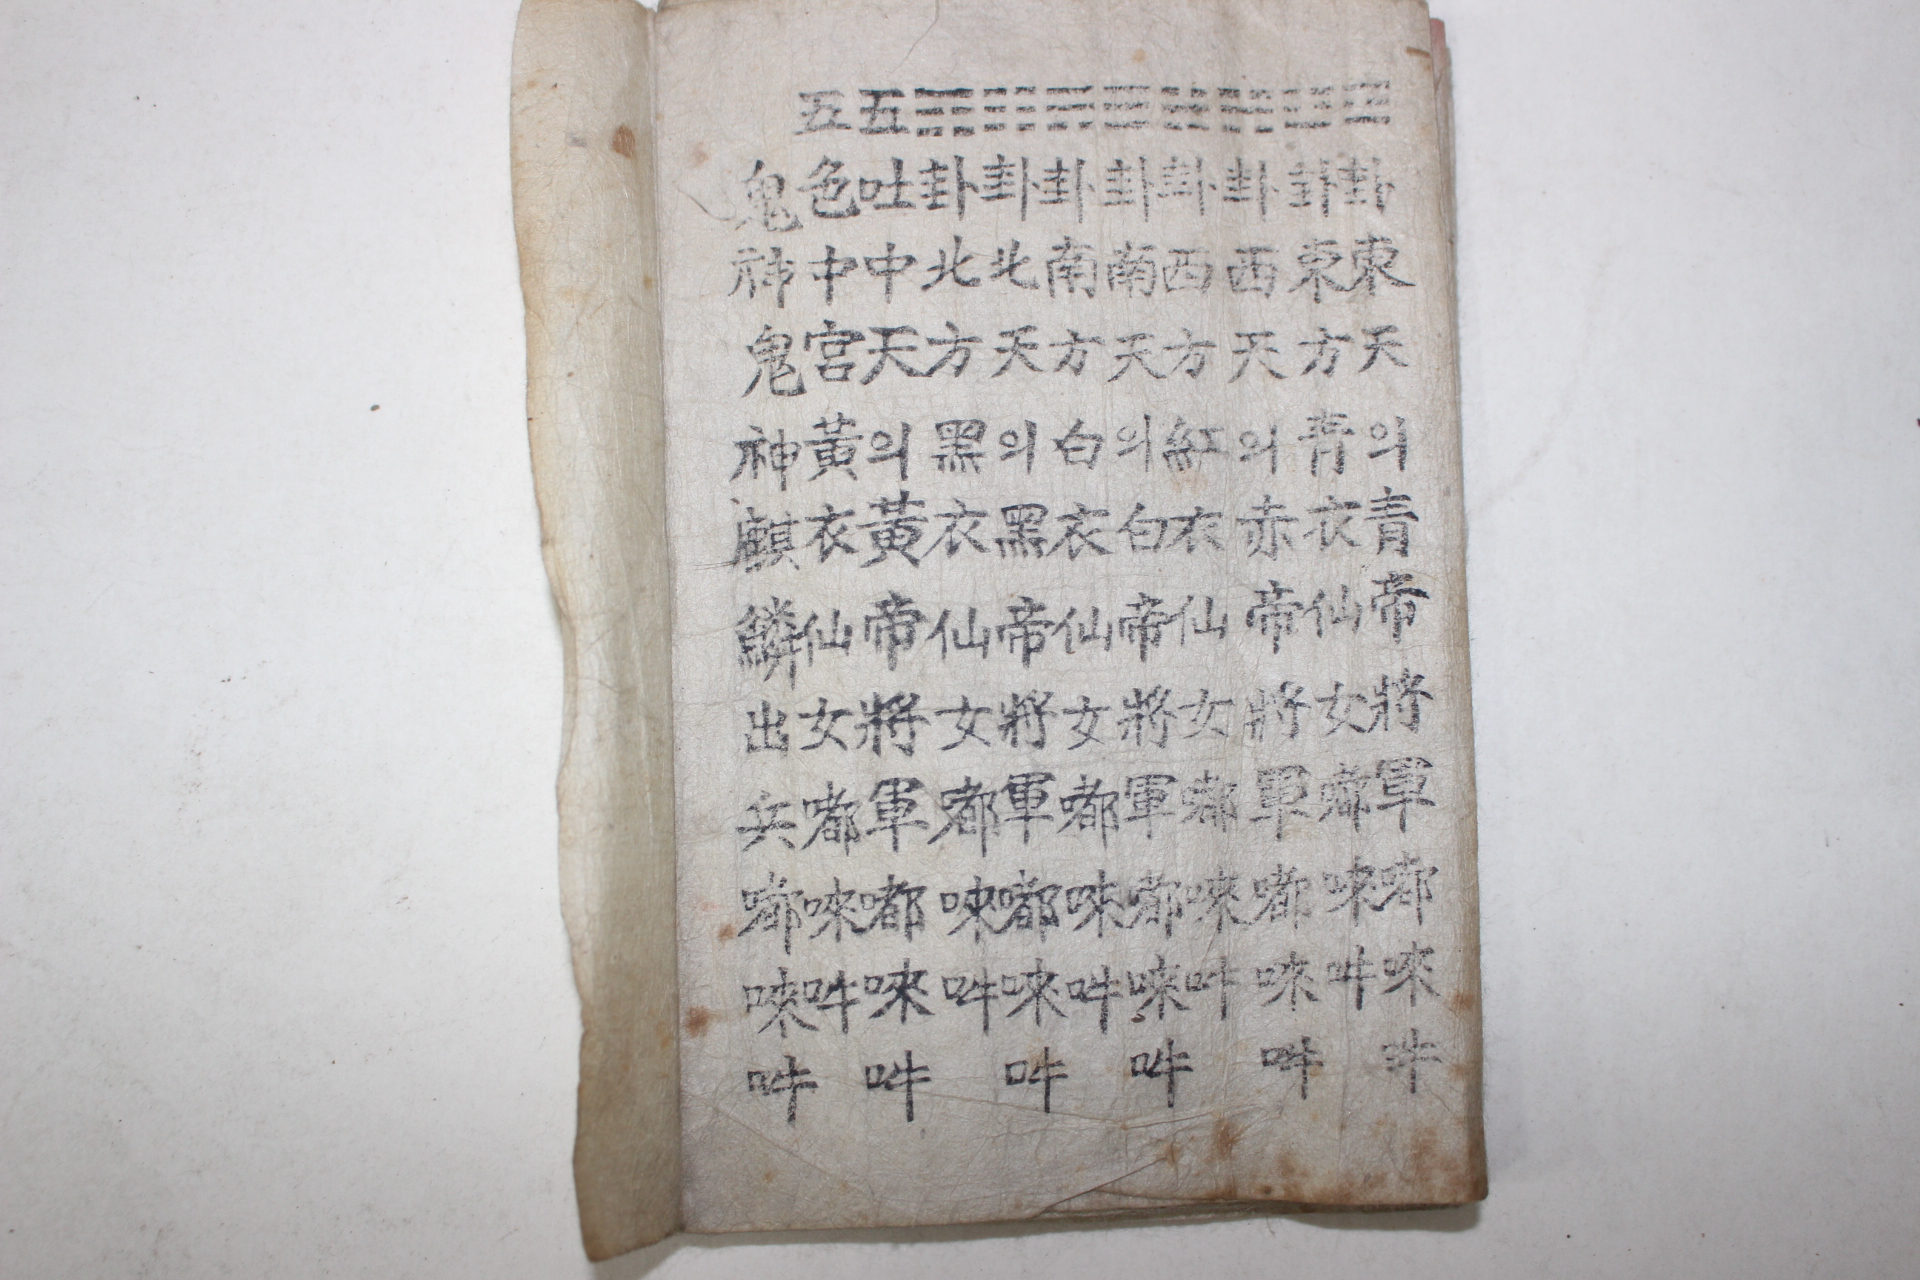 卦東天의青帝將軍嘟唻吽
卦東方青衣仙女嘟唻吽
卦西天의赤帝將軍嘟唻吽
卦西方紅衣仙女嘟唻吽
卦南天의白帝將軍嘟唻吽
卦南方白衣仙女嘟唻吽
☷卦北天의黑帝將軍嘟唻吽
卦北方黑衣仙女嘟唻吽
五吐中天의黃帝將軍嘟唻吽
五色中宮黃衣仙女嘟唻吽
鬼神鬼神麒鱗出兵嘟唻吽